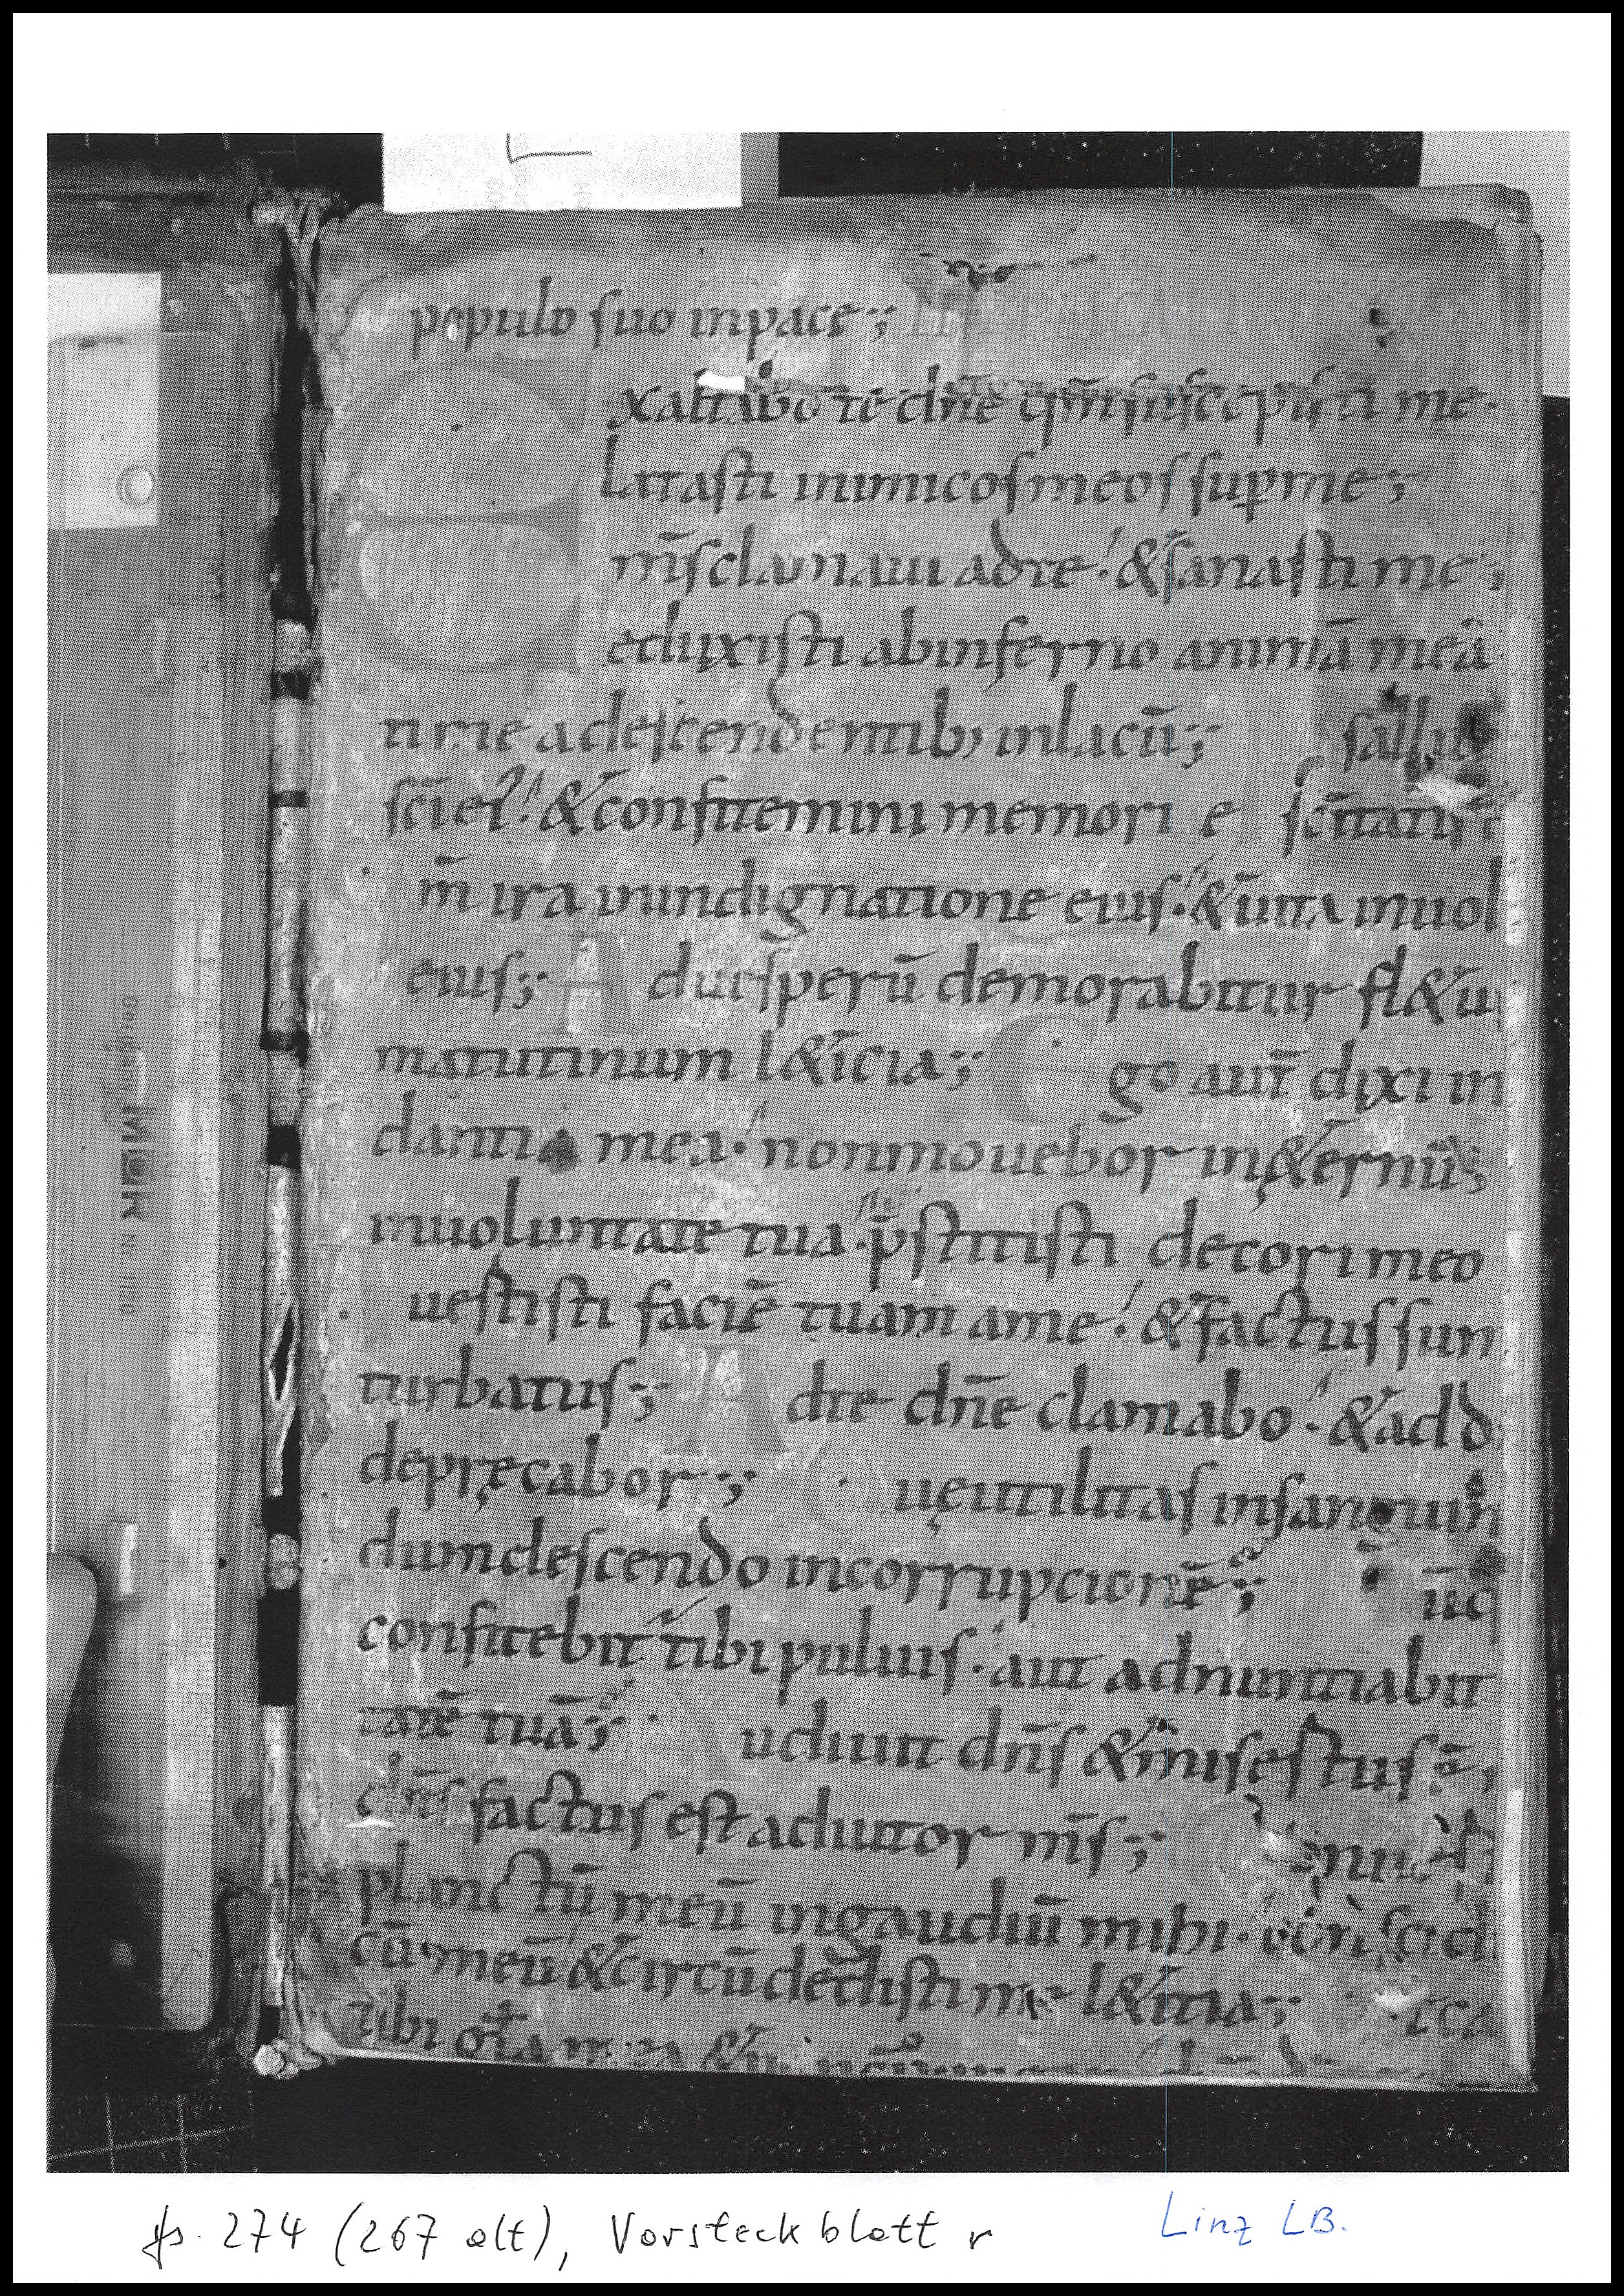 populo suo inpace;
xaltabo te dn̄e qm̄ suscepisti me.
latasti inimicos meos sup me;
m̄s clamaui adte. & sanasti me;
eduxisti abinferno animā meā
ti me adescendentib; inlacū;
sc̄i ei. & confitemini memori e sc̄itatis
m̄ ira inindignatione eius. & uita inuol
eius; A duesperū demorabitur fl&u
matutinum l&icia; E go aut̄ dixi in
dantia mea. nonmouebor in&ernū;
inuoluntate tua. p̄stitisti decori meo
uestisti faciē tuam ame. & factus sun
turbatus; A dte dn̄e clamabo. & add
deprecabor; Q ue utilitas insanguin
dumdescendo incorrupcionē;
confitebit̄ tibi puluis. aut adnuntiabit
tatē tuā; A udiuit dn̄s & misestus ē,
dn̄s factus est adiutor m̄s;
planctū meū ingaudiū mihi. conscid
cū meū & circūdedisti me l&itia;
tibi
fs. 274 (267 alt), Vorsteckblatt r
Linz LB.